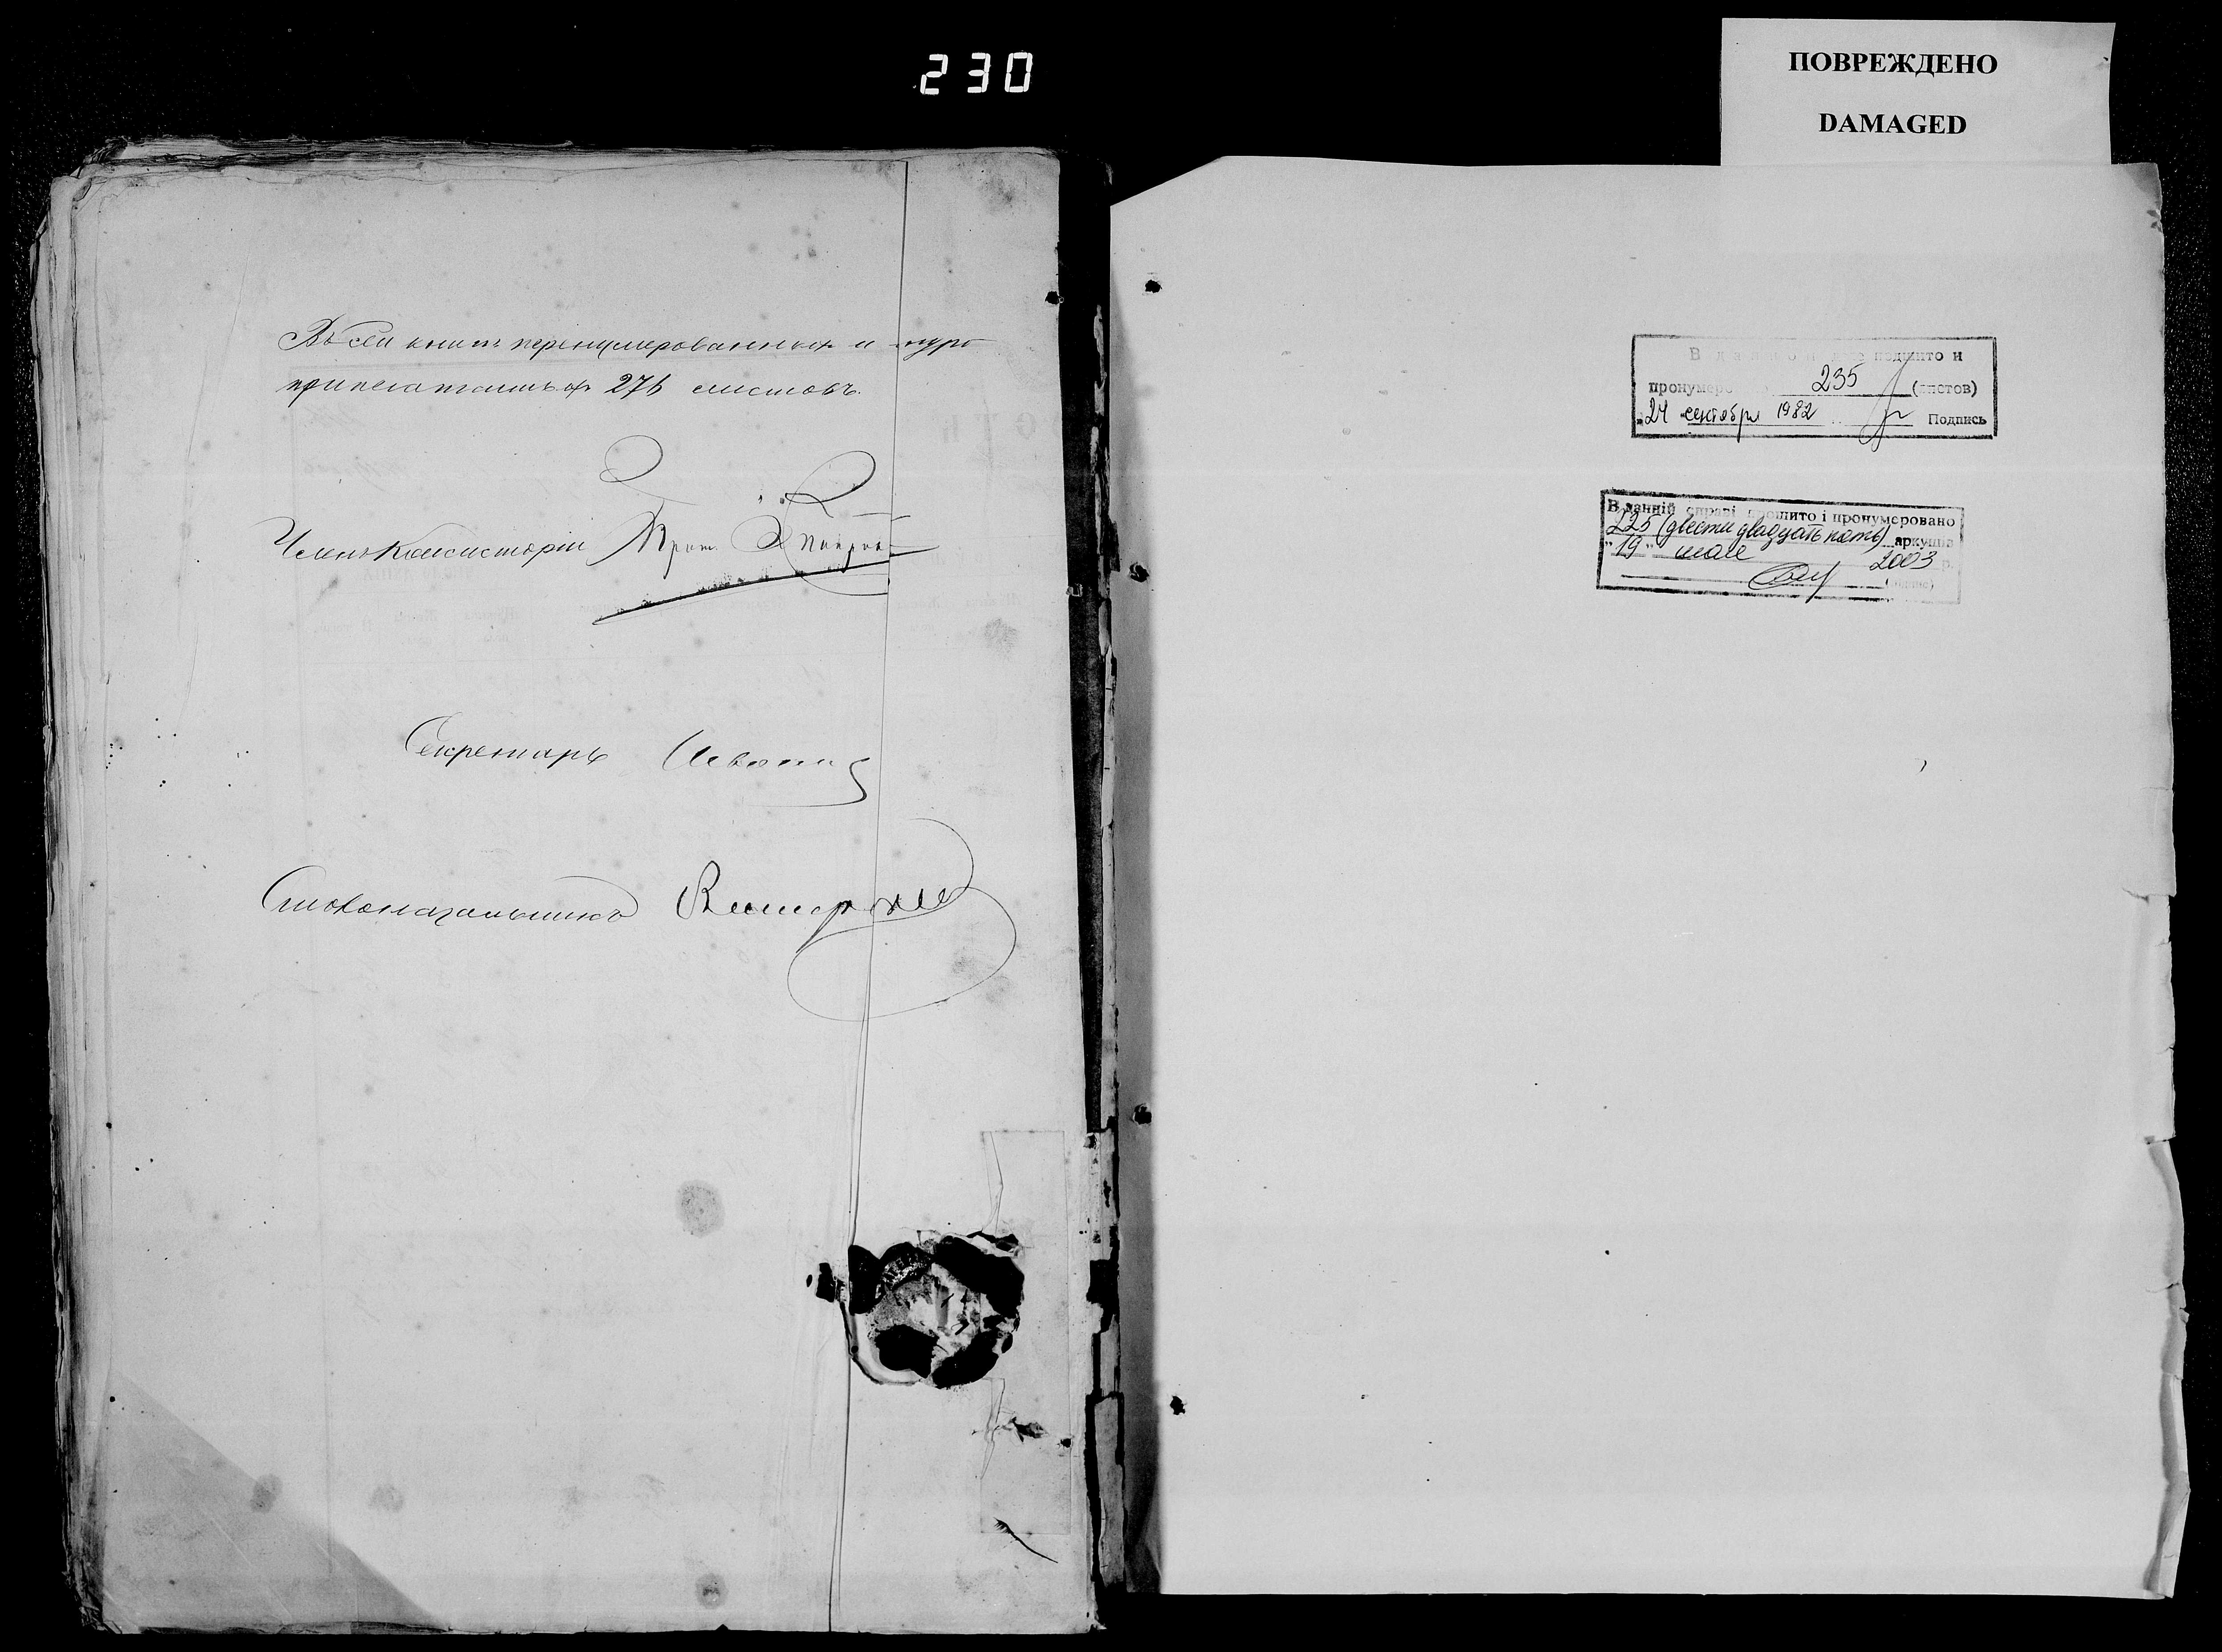 230
ПОВРЕЖДЕНО
DAMAGED
Въ сей книгѣ перенумерованныхъ и шнуро
припечатанныхъ листовъ.
Членъ Консисторіи Прот.
Секретарь
Столоначальникъ
В подшито и
пронумеро 235 (листов)
24 сентября 1982 Подпись
В данній справі прошито і пронумеровано
225 (двести двадцать пять) аркушів
"19" мая 2003 р.